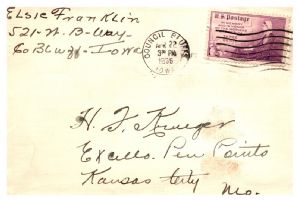 Elsie Franklin
521-W. B-Way-
Co Bluffs-Iowa
COUNCIL BLUFFS
APR 22
3 PM
1935
IOWA
U.S. Postage
H. F. Krueger
Excello Pen Points
Kansas City
Mo.